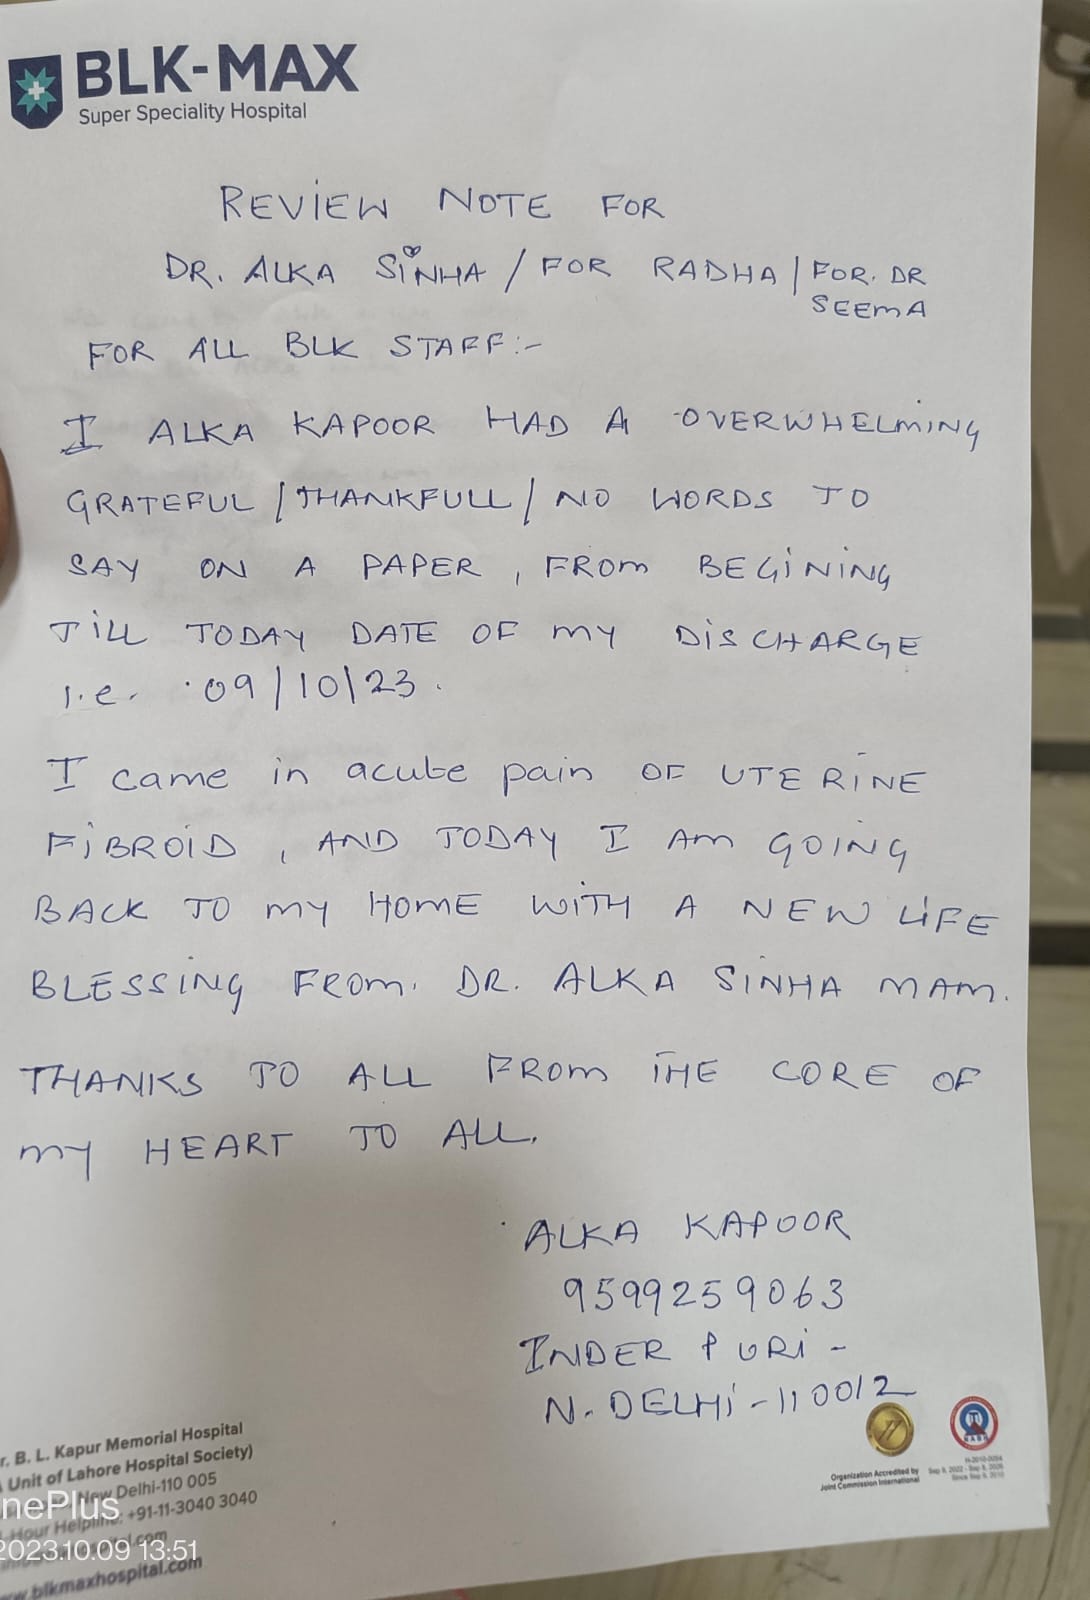 BLK-MAX
Super Speciality Hospital
REVIEW NOTE FOR
DR. ALKA SINHA / FOR RADHA / FOR. DR
SEEMA
FOR ALL BLK STAFF:-
I ALKA KAPOOR HAD A OVERWHELMING
GRATEFUL / THANKFULL / NO WORDS TO
SAY ON A PAPER, FROM BEGINING
TILL TODAY DATE OF MY DISCHARGE
i.e. 09/10/23.
I came in acute pain OF UTERINE
FIBROID, AND TODAY I AM GOING
BACK TO MY HOME WITH A NEW LIFE
BLESSING FROM. DR. ALKA SINHA MAM.
THANKS TO ALL FROM THE CORE OF
MY HEART TO ALL.
ALKA KAPOOR
9599259063
INDER PURI -
N. DELHI - 110012
r. B. L. Kapur Memorial Hospital
Unit of Lahore Hospital Society)
New Delhi-110 005
-Hour Helpline: +91-11-3040 3040
www.blkmaxhospital.com
Organization Accredited by
Joint Commission International
nePlus
2023.10.09 13:51